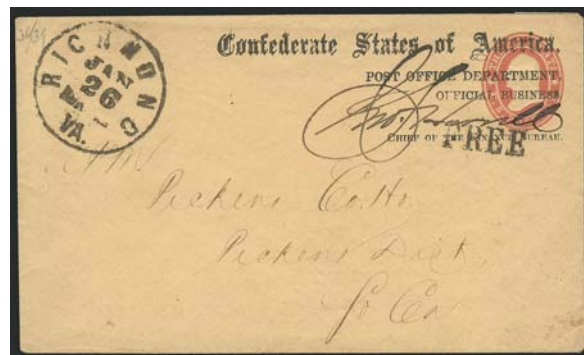 RICHMOND VA.
JAN
26
Confederate States of America.
POST OFFICE DEPARTMENT,
OFFICIAL BUSINESS
CHIEF OF THE FINANCE BUREAU.
FREE
Pickens C.Ho.
Pickens Dist.
So Ca